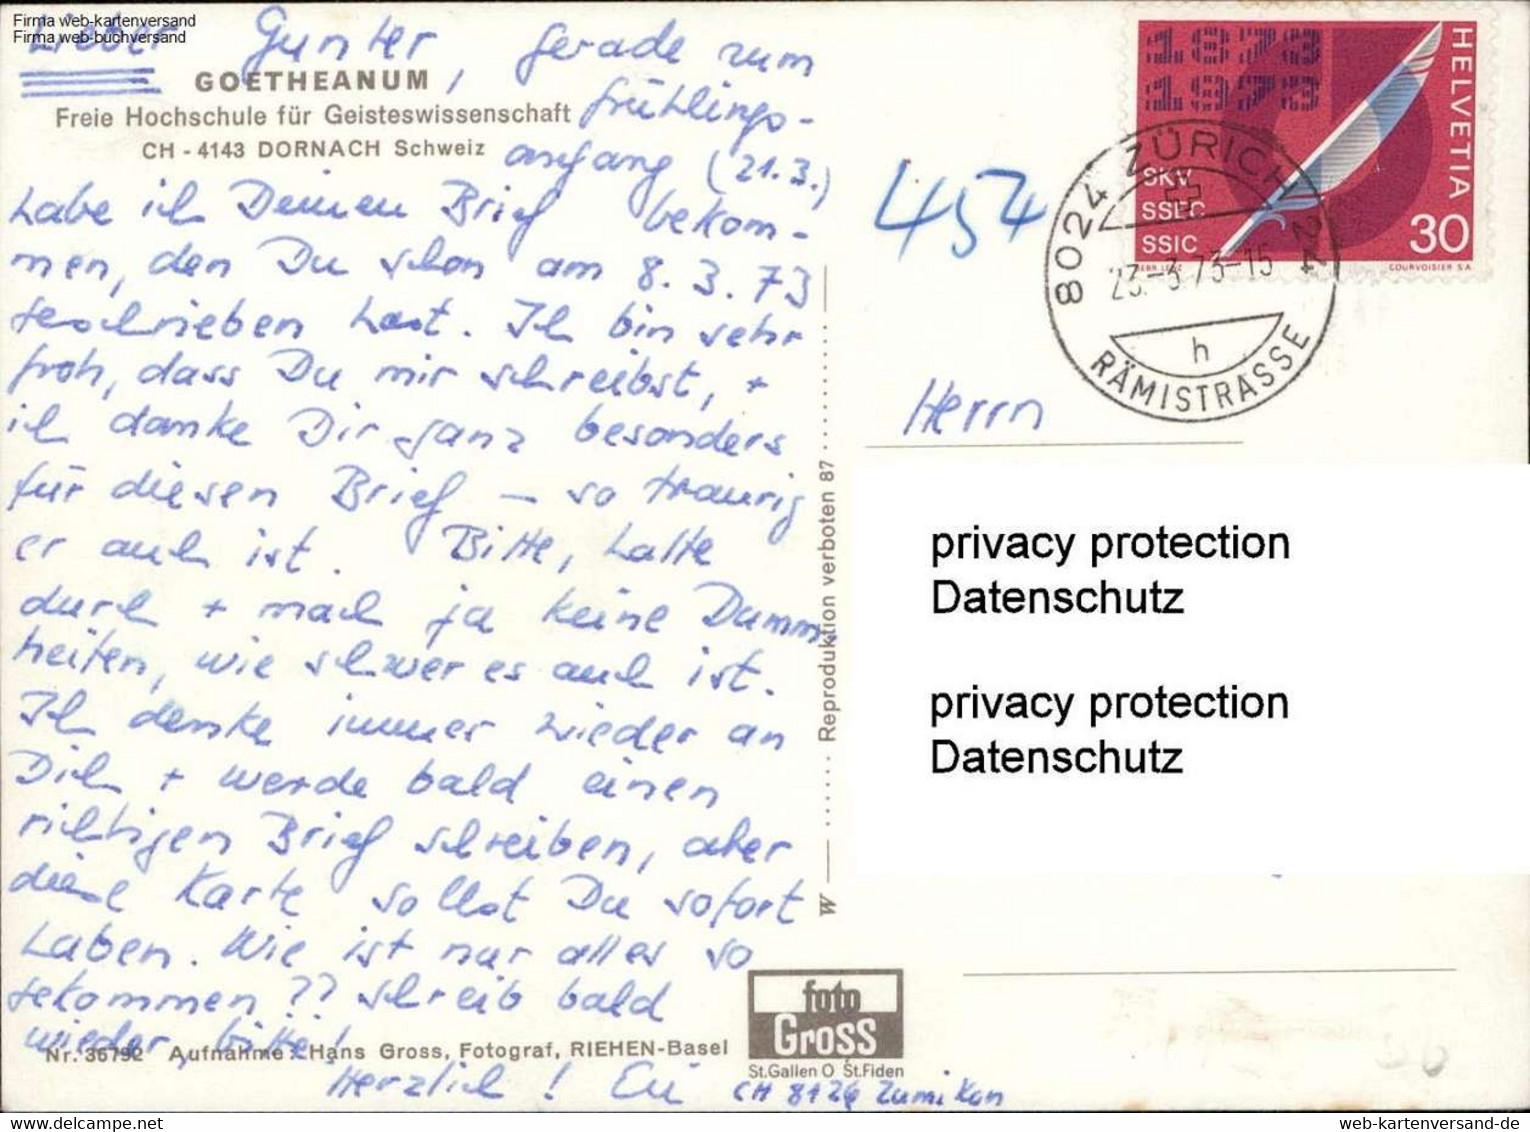 Firma web-kartenversand
Firma web-buchversand
Lieber Gunter, gerade zum
GOETHEANUM
Freie Hochschule für Geisteswissenschaft
CH - 4143 DORNACH Schweiz
frühlings-
anfang (21.3.)
habe ich Deinen Brief bekom-
men, den Du schon am 8.3.73
geschrieben hast. Ich bin sehr
froh, dass Du mir schreibst, +
ich danke Dir ganz besonders
für diesen Brief – so traurig
er auch ist. Bitte, halte
durch + mach ja keine Dumm-
heiten, wie schwer es auch ist.
Ich denke immer wieder an
Dich + werde bald einen
richtigen Brief schreiben, aber
diese Karte sollst Du sofort
haben. Wie ist nur alles so
gekommen ?? schreib bald
wieder, bitte!
Nr. 36792 Aufnahme: Hans Gross, Fotograf, RIEHEN-Basel
Herzlich!
CH 8126 Zumikon
W Reproduktion verboten 87
foto
Gross
St.Gallen O St.Fiden
454
1873
1973
SKV
SSEC
SSIC
HELVETIA
30
COURVOISIER S.A.
8024 ZÜRICH 24
23.-3.73-15
h
RÄMISTRASSE
Herrn
privacy protection
Datenschutz
privacy protection
Datenschutz
web-kartenversand-de